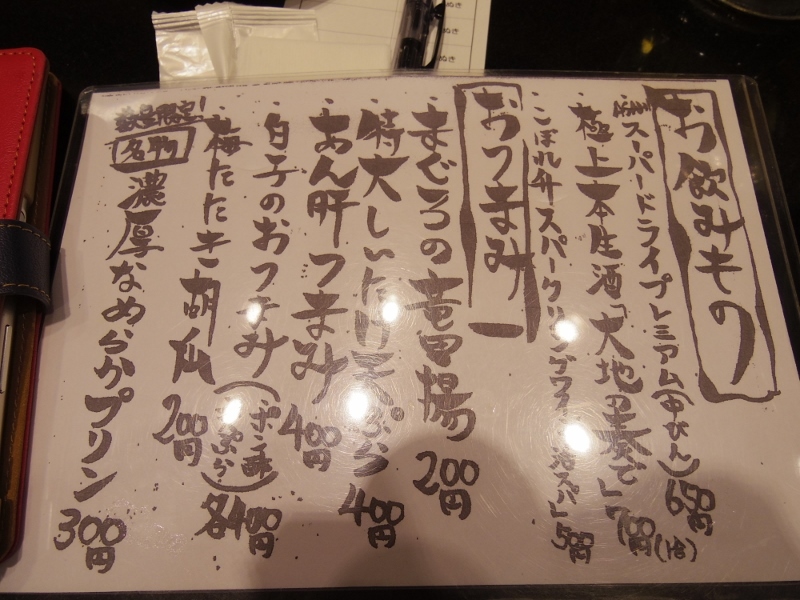 お飲みもの
Asahi スーパードライプレミアム(中びん)650円
・極上本生酒「大地の奏で」700円(1合)
・こぼれ升スパークリングワイン 泡スパ」500円
おつまみ
・まぐろの竜田揚 200円
・特大しいたけ天ぷら 400円
・あん肝つまみ 400円
・白子のおつまみ(ポン酢・天ぷら)各400円
・梅たたき胡瓜 200円
数量限定!
名物
濃厚なめらかプリン 300円
ぬき
ぬき
ぬき